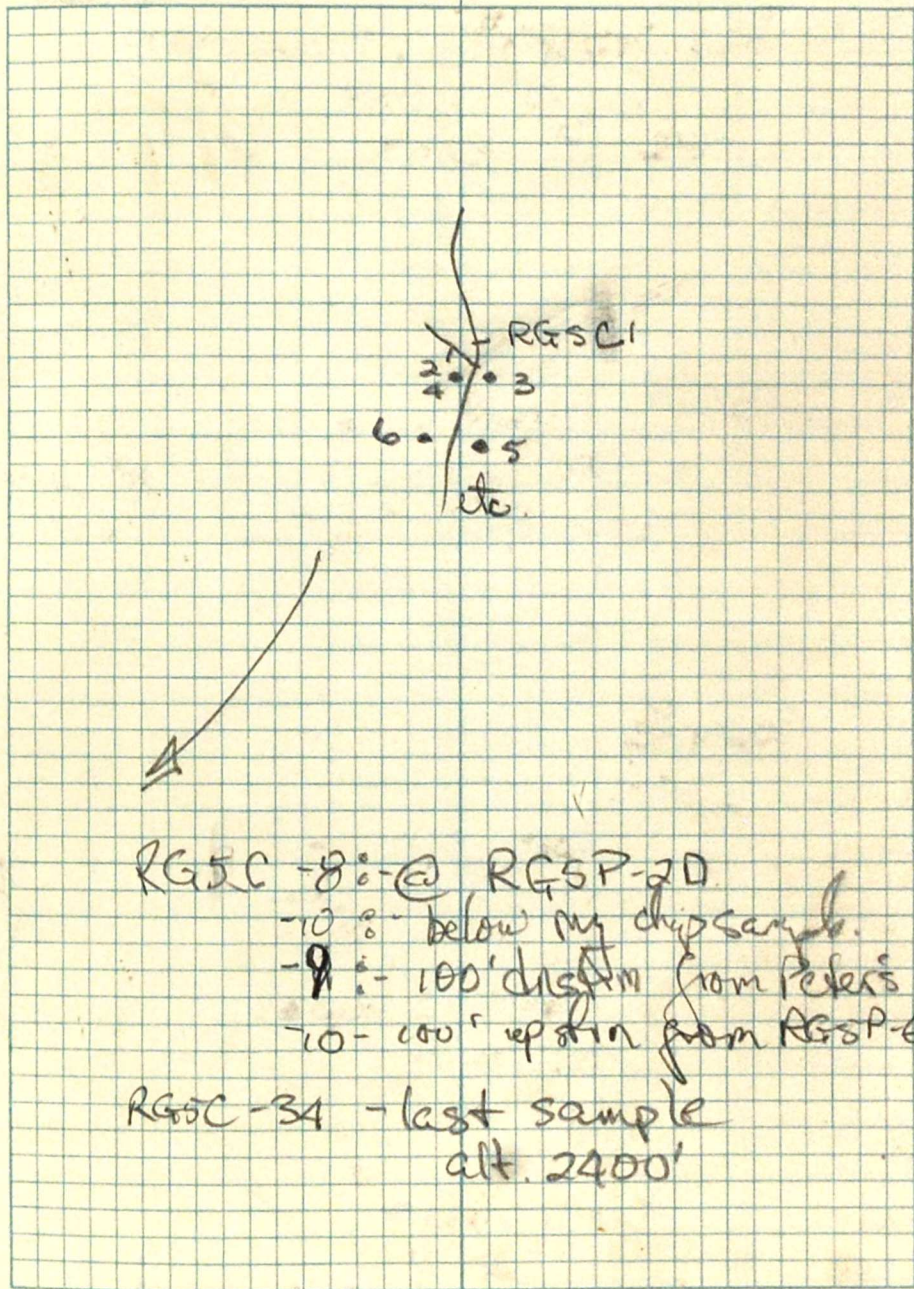 RG5C1
2
4
3
6
5
etc.
RG5C -8 :- @ RG5P-2D
-10 :- below my chip sample.
-9 :- 100' dnstrm from Peter's
-10- 100' upstrm from RG5P-6
RG5C -34 - last sample
alt. 2400'